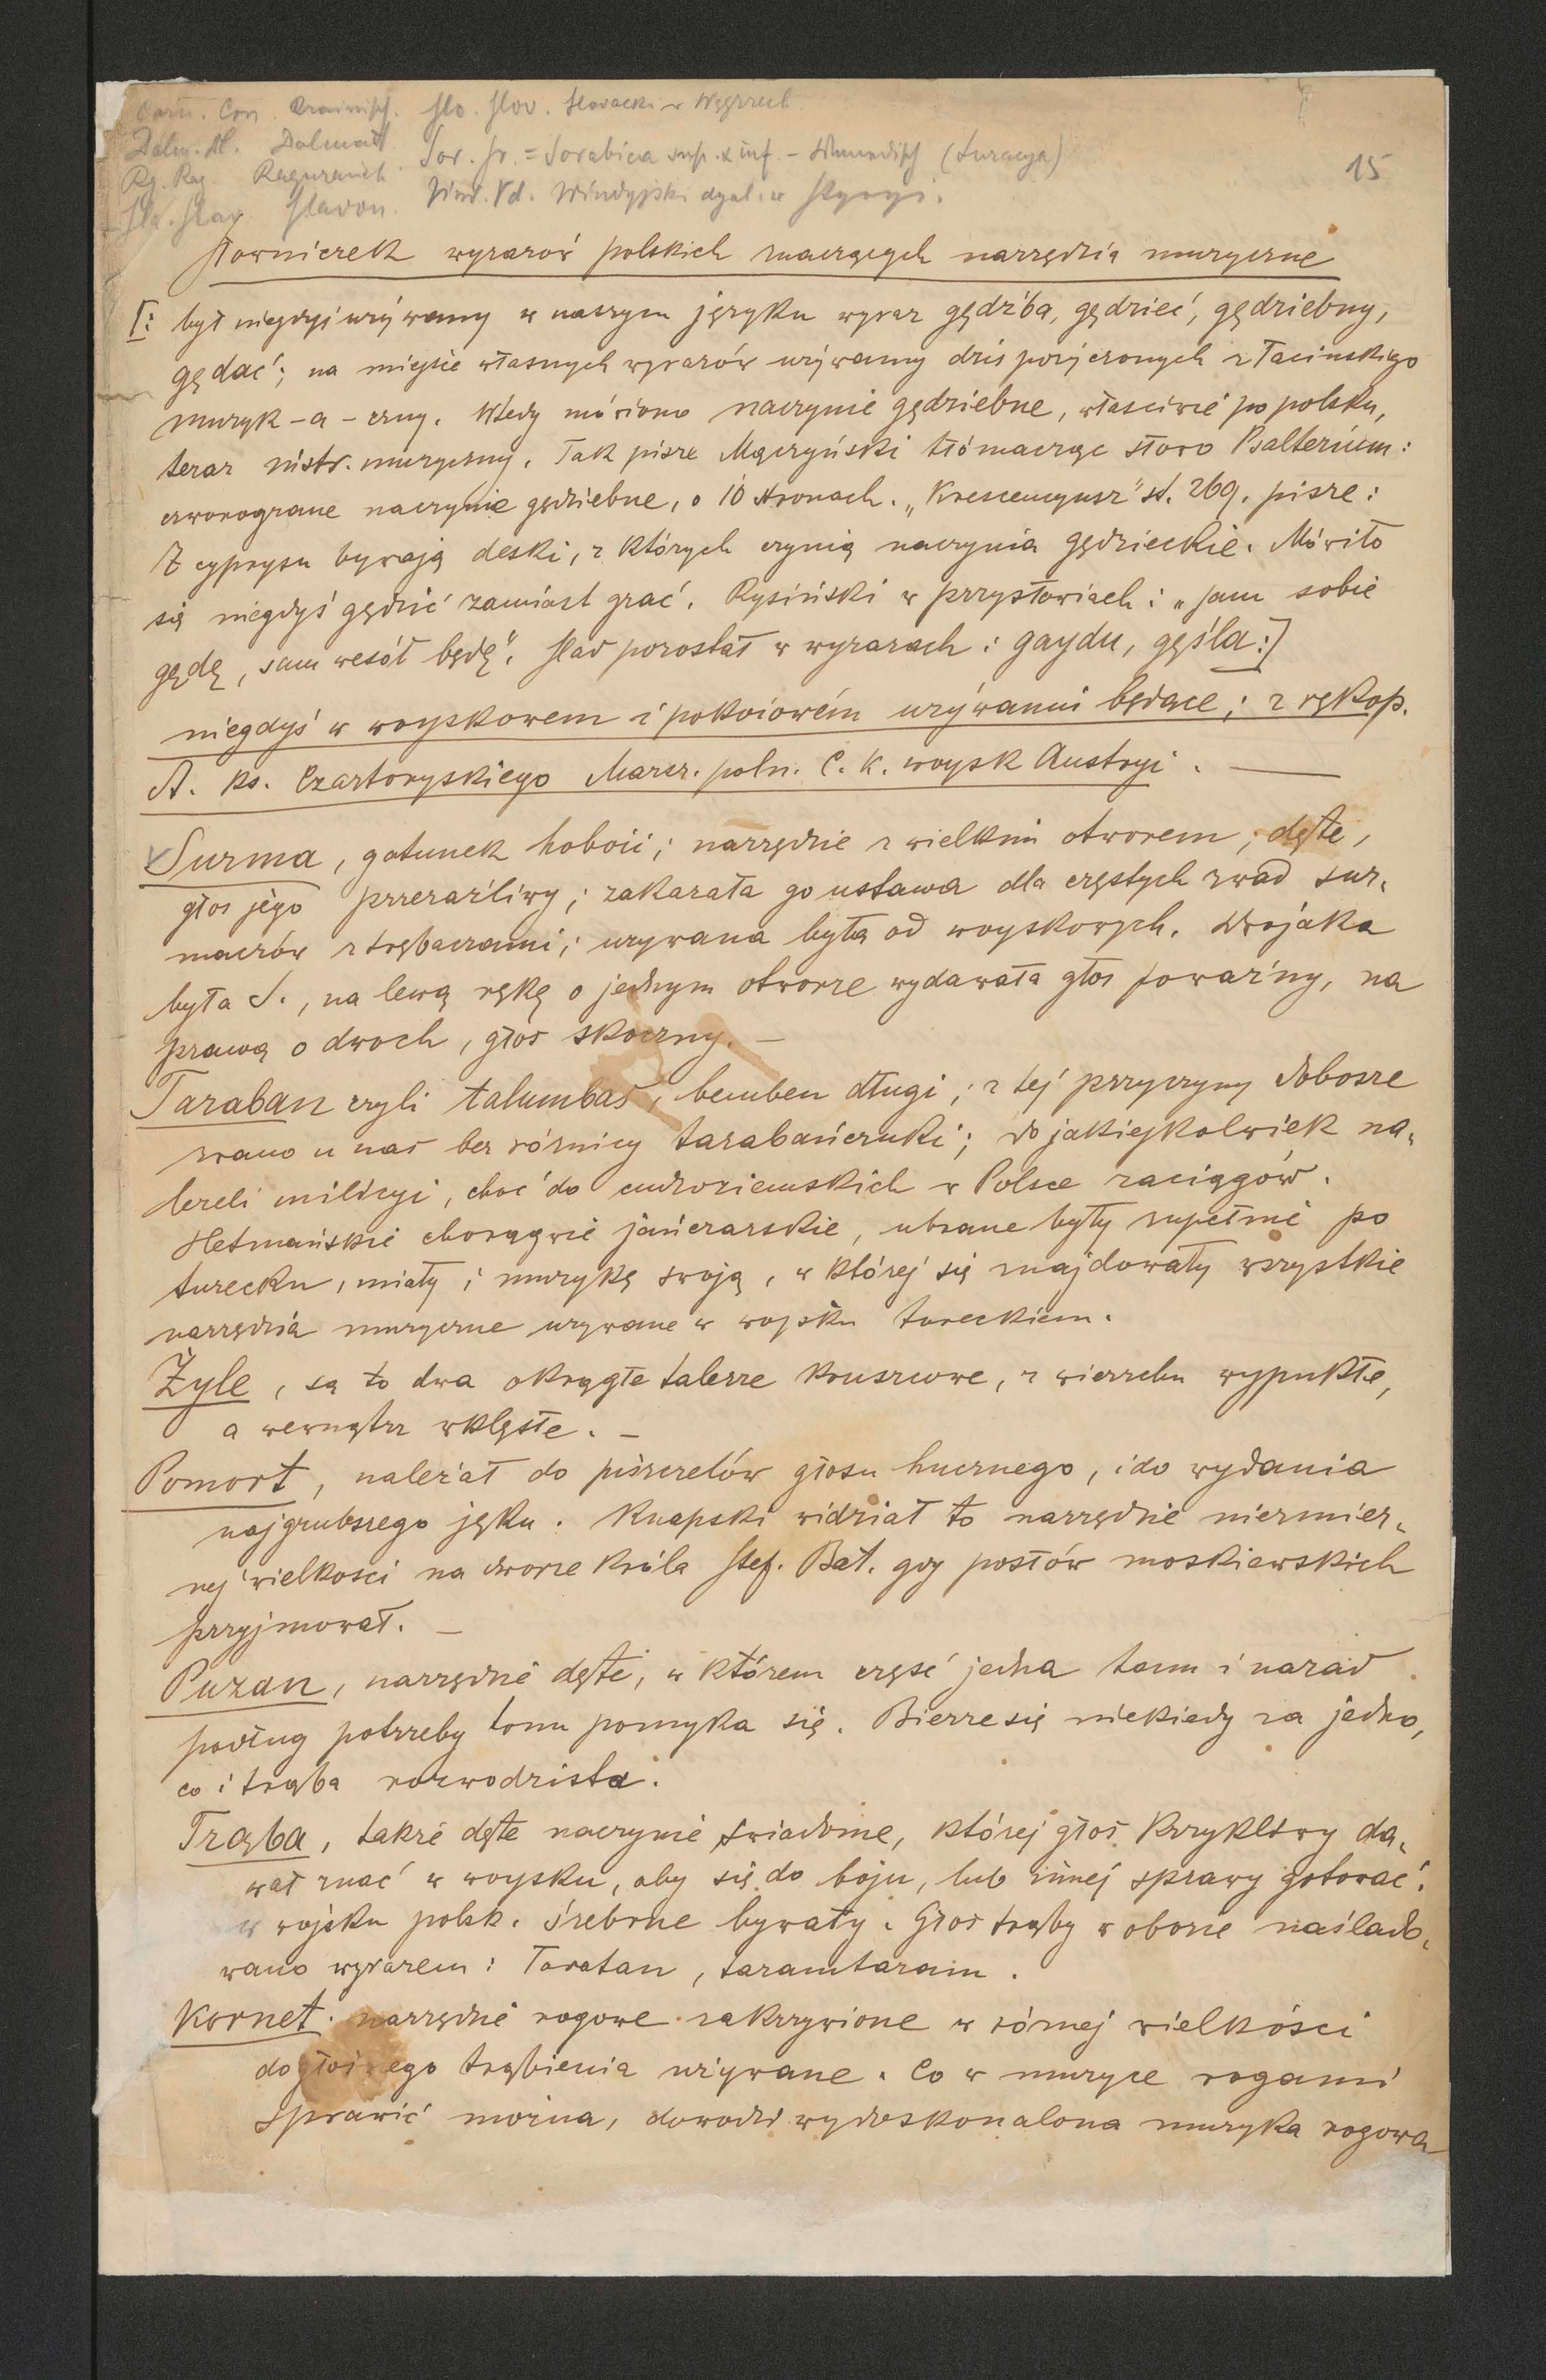 Carn. Crn. Krainisch. Slo. Slov. Slovacki w Węgrzech.
Dalm. Dl. Dalmat. Sor. Sr. = Sorabica sup. & inf. – Wendisch (Luzacya)
Rg. Rag. Raguranisch. Vind. Vd. Windyjski dyal. w Styryi.
Sla. Slav. Slavon.
15
Słowniczek wyrazów polskich znaczących narzędzia muzyczne
[: był niegdyś używany w naszym języku wyraz gędźba, gędzieć, gędziebny,
gędać; na miejsce własnych wyrazów używamy dziś pożyczonych z łacinskiego
muzyk – a – czny. Wtedy mówiono naczynie gędziebne, właściwie po polsku,
teraz instr. muzyczny. Tak pisze Mączyński tłómacząc słowo Psalterium:
czworograne naczynie gędziebne, o 10 stronach. „Krescencyusz" st. 269. pisze:
Z cyprysu bywają deski, z których czynią naczynia gędzieckie. Mówiło
się niegdyś gędzić zamiast grać. Rysiński w przysłowiach: „sam sobie
gędę, sam wesół będę". Ślad pozostał w wyrazach: gaydu, gęśla:]
niegdyś w woyskowem i pokoiowém użýwaniu będące; z rękop.
A. ks. Czartoryskiego Marsz. poln. C. K. woysk Austryi. —
Surma, gatunek hoboii; narzędzie z wielkim otworem; dęte,
głos jego przeraźliwy; zakazała go ustawa dla częstych zwad sur-
maczów z trębaczami; używana była od woyskowych. Dwojaka
była S., na lewą rękę o jednym otworze wydawała głos poważny, na
prawą o dwoch, głos skoczny. –
Taraban czyli talumbas, bemben długi; z tej przyczyny dobosze
zwano u nas bez róznicy tarabańczuki; do jakiejkolwiek na-
leżeli milicyi, choć do cudzoziemskich w Polsce zaciągów.
Hetmańskie chorągwie jańczarskie, ubrane były zupełnie po
turecku, miały i muzykę swoją, w której się znajdowały wszystkie
narzędzia muzyczne używane w wojsku tureckiem.
Żyle, są to dwa okrągłe talerze kruszcowe, z wierzchu wypukłe,
a wewnątrz wklęsłe. –
Pomort, należał do piszczelów głosu hucznego, i do wydania
najgrubszego jęku. Knapski widział to narzędzie niezmier-
nej wielkosci na dworze króla Stef. Bat. gdy posłów moskiewskich
przyjmował. –
Puzan, narzędzie dęte, w którem część jedna tam i nazad
podług potrzeby tonu pomyka się. Bierze się niekiedy za jedno,
co i trąba rozwodzista.
Trąba, także dęte naczynie świadome, której głos krzykliwy da-
wał znać w woysku, aby się do boju, lub innej sprawy gotować.
w wojsku polsk. śrebrne bywały. Głos trąby w obozie naślado-
wano wyrazem: Taratan, taramtaram.
Kornet. narzędzie rogowe zakrzywione w róznej wielkości
do głośnego trąbienia używane. Co w muzyce rogami
sprawić można, dowodzi wydoskonalona muzyka rogowa